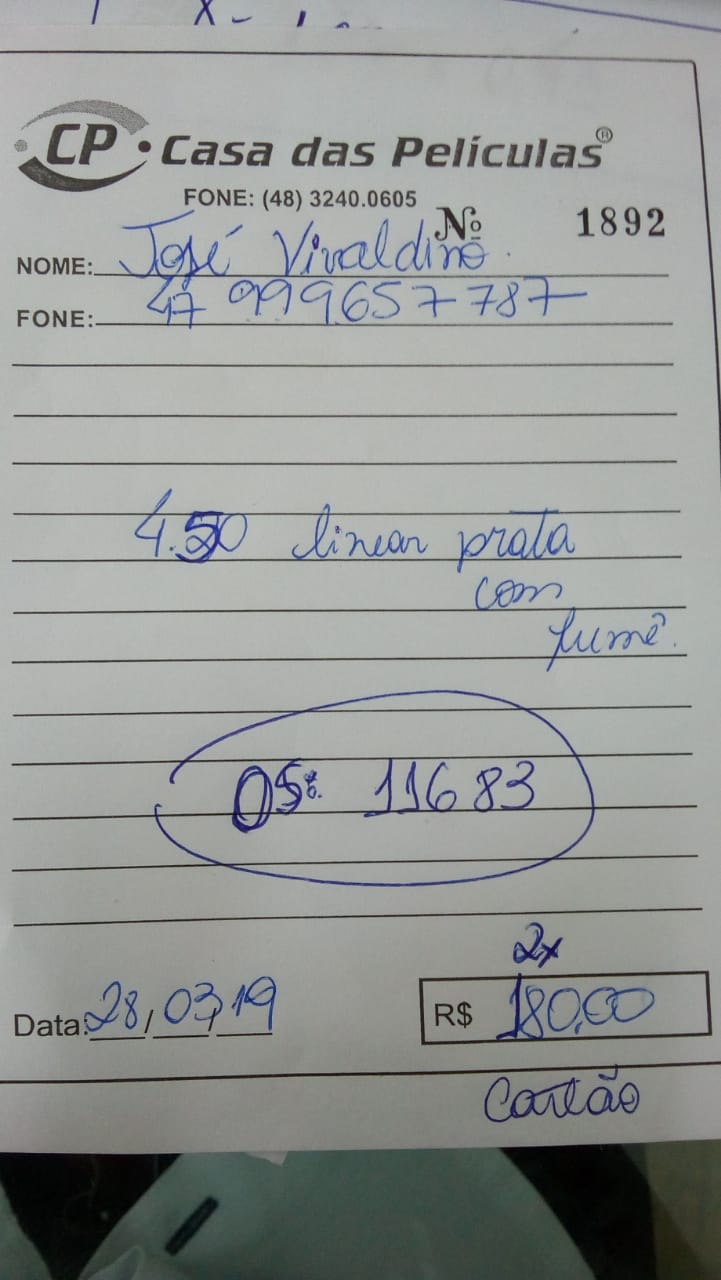 CP • Casa das Películas®
FONE: (48) 3240.0605
Nº 1892
NOME: José Vivaldino.
FONE: 47 999657787
4.50 linear prata
com
fumê.
OS: 11683
2x
Data: 28/03/19 R$ 180,00
Cartão